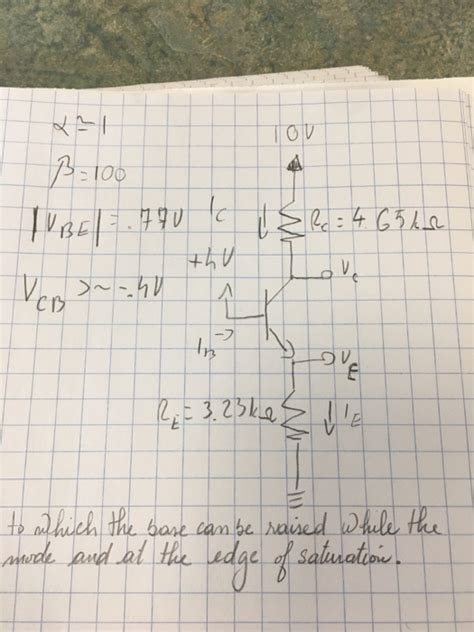 α ≃ 1
10V
β = 100
|V_BE| = .77V
I_C
R_C = 4.65kΩ
+4V
V_C
V_CB > ~ -.4V
I_B
V_E
R_E = 3.23kΩ
I_E
to which the base can be raised while the
mode and at the edge of saturation.